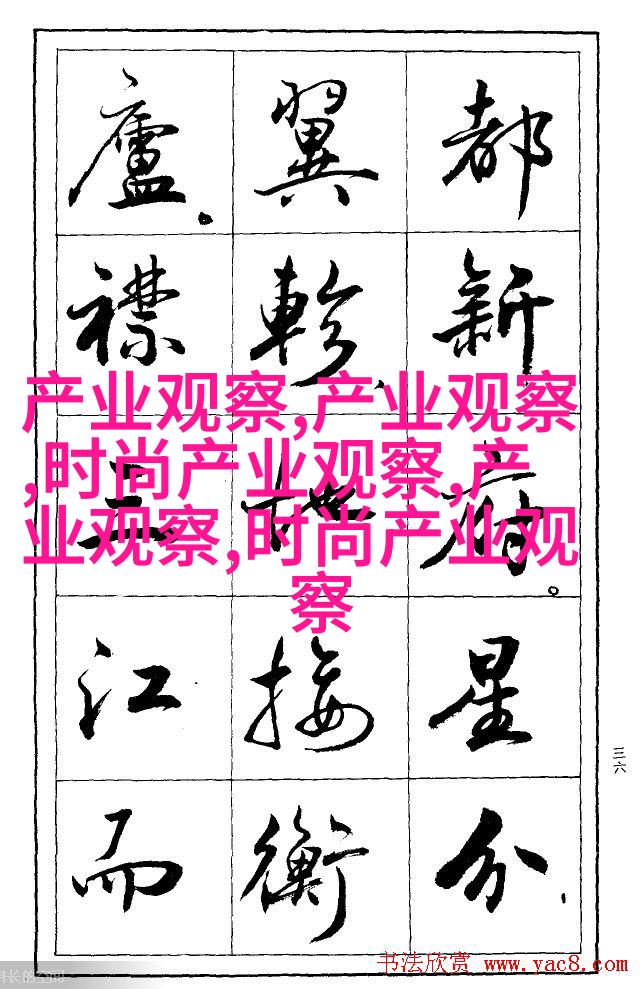 都新府。星分、
翼軫、地接衡
廬。襟三江而
产业观察,产业观察
,时尚产业观察,产
业观察,时尚产业观
察
三六
书法欣赏 www.yac8.com
长的空间